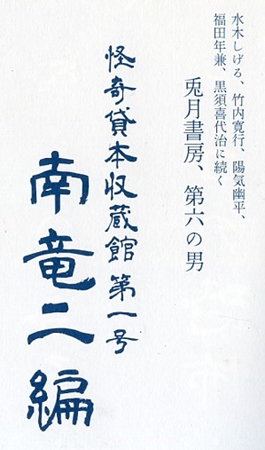 水木しげる、竹内寛行、陽気幽平、
福田年兼、黒須喜代治に続く
兎月書房、第六の男
怪奇貸本収蔵館 第一号
南竜二編